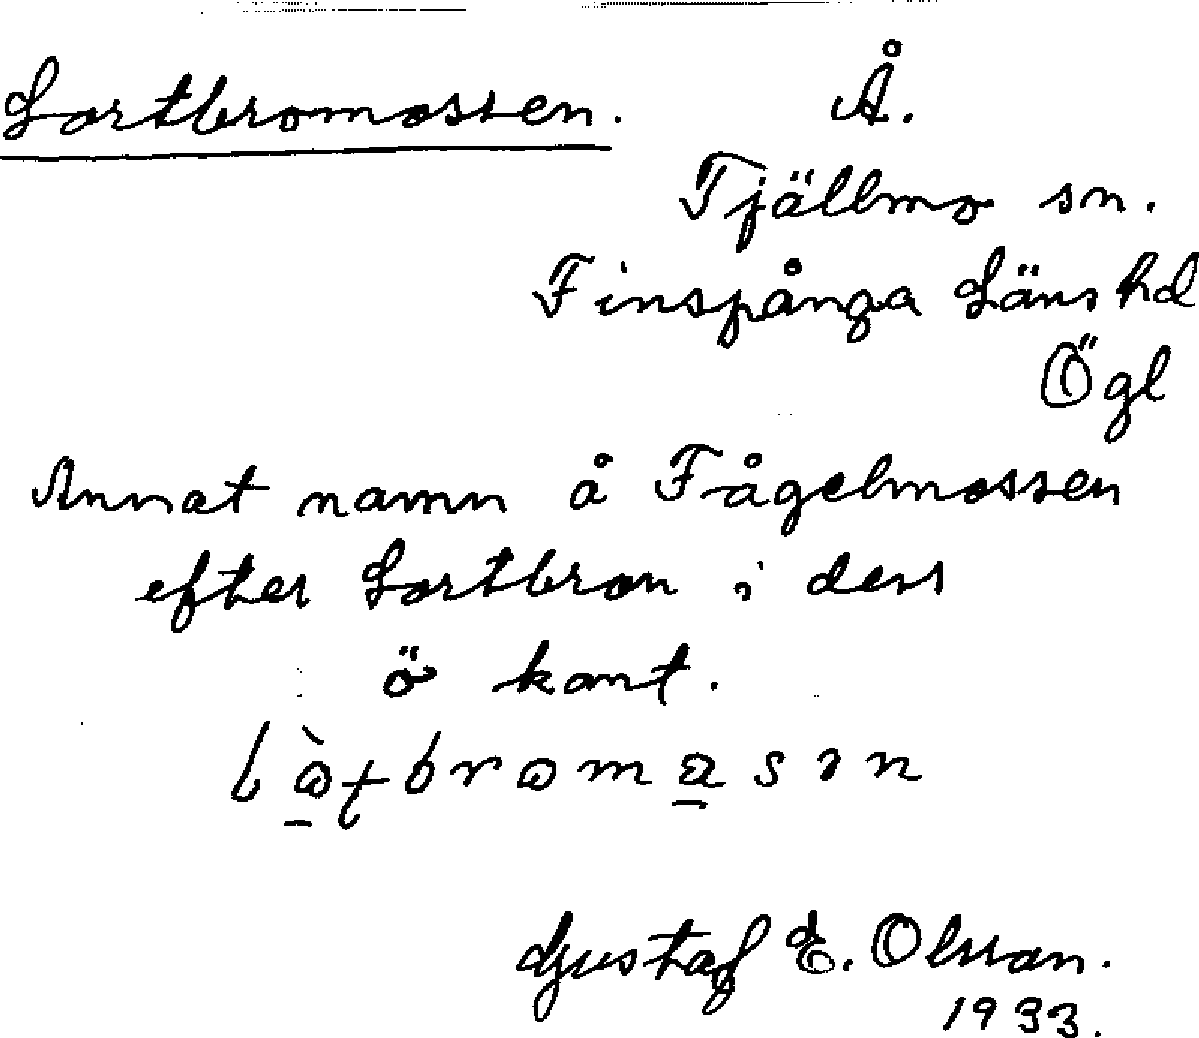 Lortbromossen. Å.
Tjällmo sn.
Finspånga Läns hd
Ögl
Annat namn å Fågelmossen
efter Lortbron i dess
ö kant.
Gustaf E. Olsson.
1933.